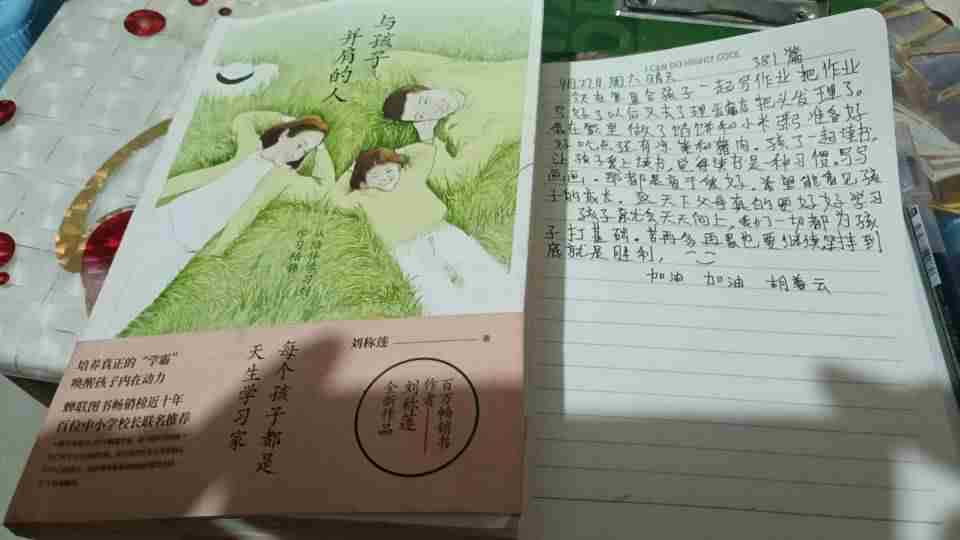 与孩子
并肩的人
从陪伴学习到
学习陪伴
刘称莲 著
培养真正的“学霸”
唤醒孩子内在动力
蝉联图书畅销榜近十年
百位中小学校长联名推荐
每个孩子都是
天生学习家
百万畅销书
作者——
刘称莲
全新作品
I CAN DO
381篇
9月27日 周六 晴天
一起写作业 把作业
写好了以后又去了理发店 把头发理了。
做了馅饼和小米粥 准备好
好吃点 还有 和猪肉。孩子一起读书.
让孩子爱上读书, 读书是一种习惯。写写
画画, 那都是 希望能看见孩
子的成长。 天下父母真的要好好学习
孩子 天天向上 我们一切都为孩
子打基础。苦再多再累也要继续坚持到
底就是胜利,
加油 加油 胡善云